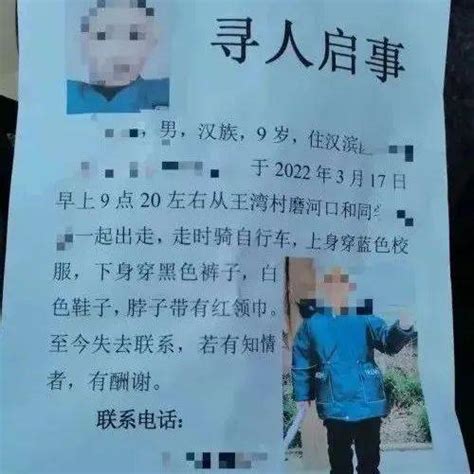 寻人启事
，男，汉族，9岁，住汉滨
于2022年3月17日
早上9点20左右从王湾村磨河口和同学
一起出走，走时骑自行车，上身穿蓝色校
服，下身穿黑色裤子，白
色鞋子，脖子带有红领巾。
至今失去联系，若有知情
者，有酬谢。
联系电话：